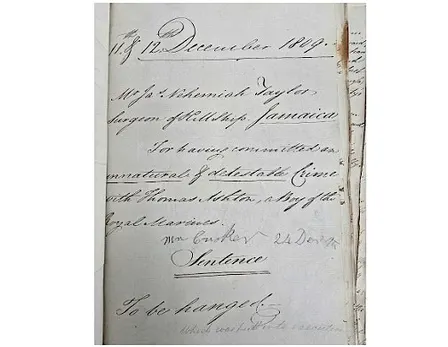 11th & 12th December 1809.
Mr Jas Nehemiah Taylor
Surgeon of H M Ship Jamaica
For having committed an
unnatural & detestable Crime
with Thomas Ashton, a Boy of the
Royal Marines.
24 Dec
Sentence
To be hanged.
which was put into execution